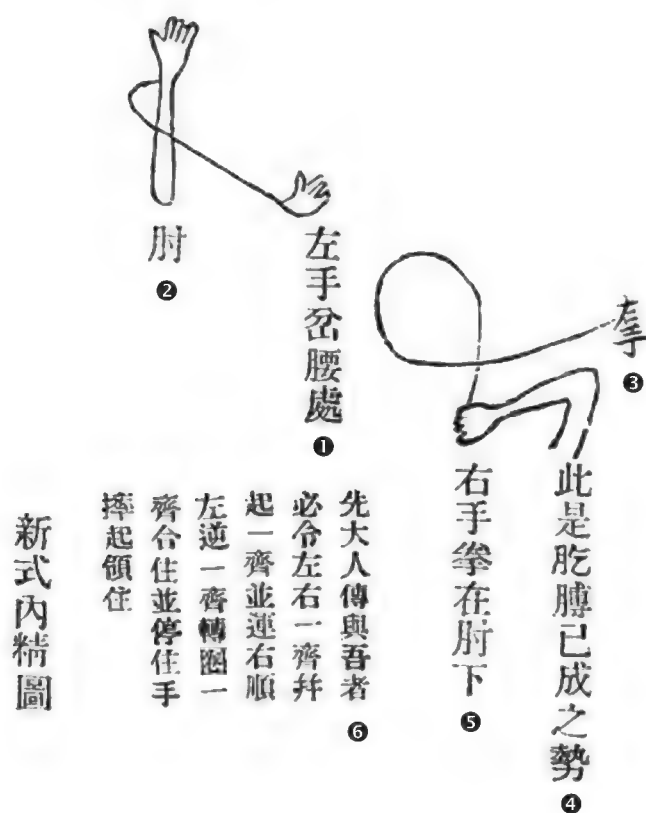 ❸
此是肐膊已成之勢❹
右手拳在肘下❺
左手岔腰處❶
肘❷
❻
先大人傳與吾者
必令左右一齊并
起一齊並運右順
左逆一齊轉圈一
齊合住並停住手
起領住
新式內精圖